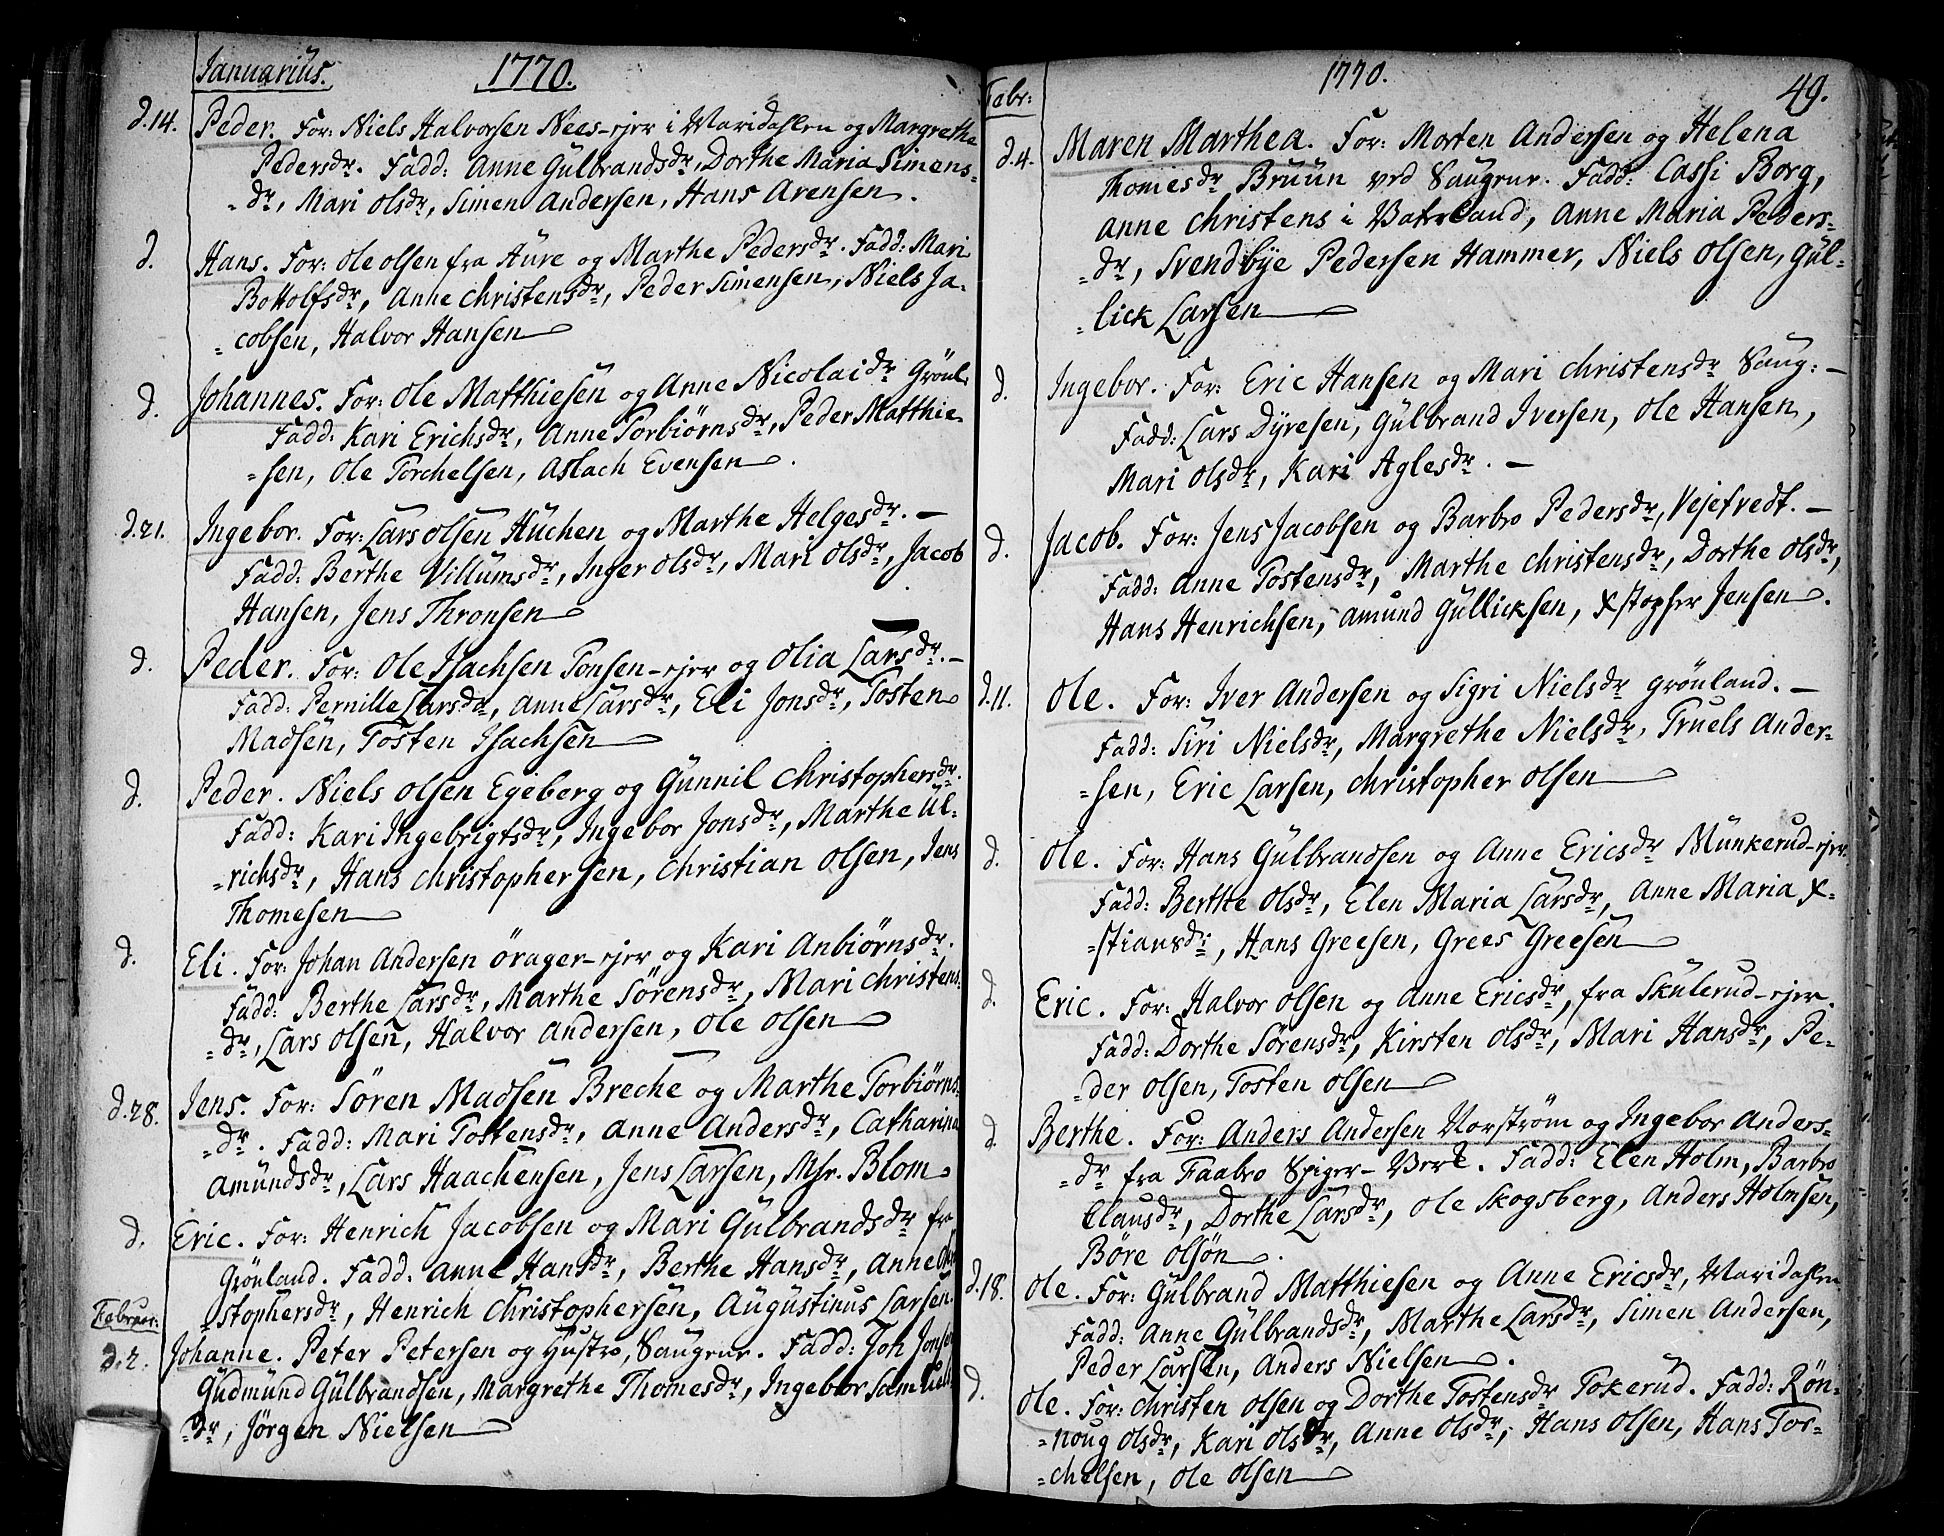 Januarius. 1770.
d.14. Peder. For: Niels Halvorsen Nees-ejer i Maridahlen og Margrethe
Pedersdr. Fadd: Anne Gülbrandsdr, Dorthe Maria Simens-
-dr, Mari Olsdr, Simen Andersen, Hans Arensen.
d. Hans. For: Ole Olsen fra Aure og Marthe Pedersdr. Fadd: Mari
Bottolfsdr, Anne Christensdr, Peder Simensen, Niels Ja-
-cobsen, Halvor Hansen
d. Johannes. For: Ole Matthiesen og Anne Nicolaidr Grönl.
Fadd: Kari Erichsdr, Anne Torbiörnsdr, Peder Matthie-
-sen, Ole Torchelsen, Aslach Evensen.
d.21. Ingebor. For: Lars Olsen Hüchen og Marthe Helgesdr. -
Fadd: Berthe Villumsdr, Inger Olsdr, Mari Olsdr, Jacob
Hansen, Jens Thronsen
d. Peder. For: Ole Isachsen Tonsen-ejer og Olia Larsdr. -
Fadd: Pernille Larsdr, Anne Larsdr, Eli Jonsdr, Tosten
Madsen, Tosten Isachsen
d. Peder. Niels Olsen Egeberg og Günnil Christophersdr.
Fadd: Kari Ingebrigtsdr, Ingebor Jonsdr, Marthe Ul-
-richsdr, Hans Christophersen, Christian Olsen, Jens
Thomesen
d. Eli. For: Johan Andersen örager-ejer og Kari Anbiörnsdr.
Fadd: Berthe Larsdr, Marthe Sörensdr, Mari Christens-
-dr, Lars Olsen, Halvor Andersen, Ole Olsen
d.28. Jens. For: Sören Madsen Breche og Marthe Torbiörns-
-dr. Fadd: Mari Tostensdr, Anne Andersdr, Catharina
Amündsdr, Lars Haachensen, Jens Larsen, Msr. Blom
d. Eric. For: Henrich Jacobsen og Mari Gülbrandsdr fr.
Grönland. Fadd: Anne Hansdr, Berthe Hansdr, Anne
stophersdr, Henrich Christophersen, Augustinus Larsen.
Februar:
d.2. Johanne. Peter Petersen og Hustro, Saugene. Fadd: Jon Jonsen
Gudmünd Gülbrandsen, Margrethe Thomesdr, Ingebor Samüels
-dr, Jörgen Nielsen
Febr: 1770. 49.
d.4. Maren Marthea. For: Morten Andersen og Helena
Thomesdr Brüün ved Saugene. Fadd: Cassi Borg,
Anne Christens i Vaterland, Anne Maria Peders-
-dr, Svendbye Pedersen Hammer, Niels Olsen, Gül-
-lick Larsen
d. Ingebor. For: Eric Hansen og Mari Christensdr Saug: -
Fadd: Lars Dyresen, Gülbrand Iversen, Ole Hansen,
Mari Olsdr, Kari Aglesdr. -
d. Jacob. For: Jens Jacobsen og Barbro Pedersdr, Vejetvedt. -
Fadd: Anne Tostensdr, Marthe Christensdr, Dorthe Olsdr,
Hans Henrichsen, Amund Güllicksen, Xstopher Jensen.
d.11. Ole. For: Iver Andersen og Sigri Nielsdr Grönland. -
Fadd: Siri Nielsdr, Margrethe Nielsdr, Truels Ander-
-sen, Eric Larsen, Christopher Olsen
d. Ole. For: Hans Gülbrandsen og Anne Ericsdr Münkerud-ejer.
Fadd: Berthe Olsdr, Elen Maria Larsdr, Anne Maria X-
-stiansdr, Hans Greesen, Grees Greesen
d. Eric. For: Halvor Olsen og Anne Ericsdr, fra Skülerud-ejer.
Fadd: Dorthe Sörensdr, Kirsten Olsdr, Mari Hansdr, Pe-
-der Olsen, Tosten Olsen
d. Berthe. For: Anders Andersen Norström og Ingebor Anders-
-dr fra Faabro Spiger-Verk. Fadd: Elen Holm, Barbro
Clausdr, Dorthe Larsdr, Ole Skogsberg, Anders Holmsen,
Böre Olsön.
d.18. Ole. For: Gülbrand Matthiesen og Anne Ericsdr, Maridahlen
Fadd: Anne Gülbrandsdr, Marthe Larsdr, Simen Andersen,
Peder Larsen, Anders Nielsen.
d. Ole. For: Christen Olsen og Dorthe Tostensdr Tokerüd. Fadd: Rön-
-noug Olsdr, Kari Olsdr, Anne Olsdr, Hans Olsen, Hans Tor-
-chelsen, Ole Olsen